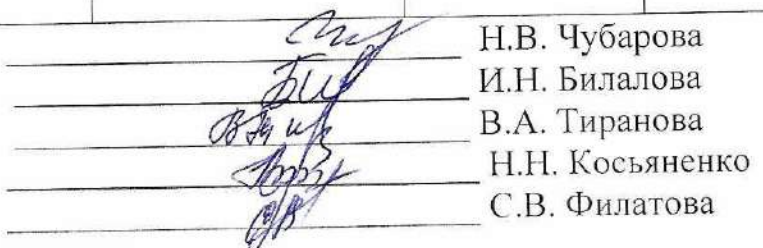 Н.В. Чубарова
И.Н. Билалова
В.А. Тиранова
Н.Н. Косьяненко
С.В. Филатова